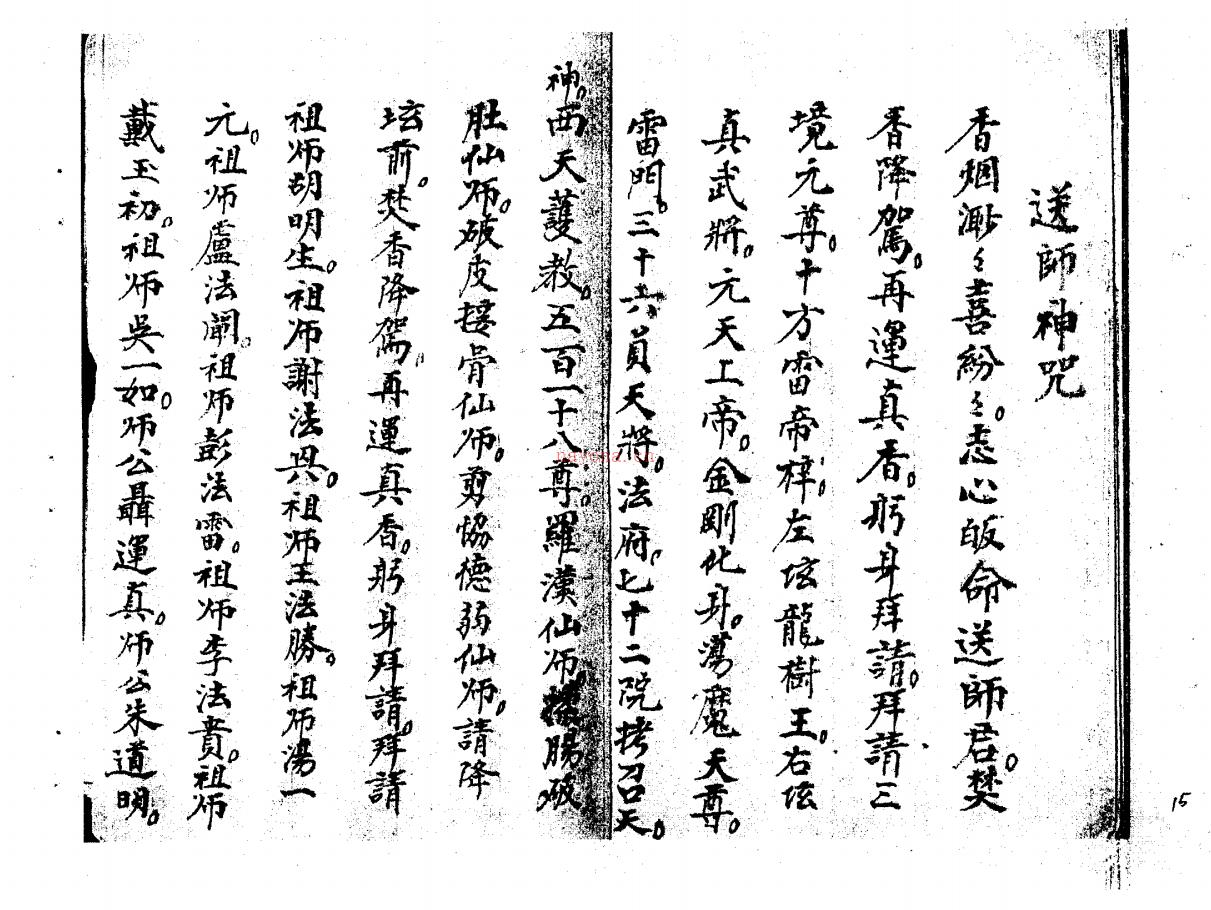 送師神咒
香烟渺々喜紛々。志心皈命送師君。焚
香降駕。再運真香。躬身拜請。拜請三
境元尊。十方雷帝。梓左垓龍樹王。右垓
真武將。元天上帝。金剛化身。蕩魔天尊。
雷門。三十六員天將。法府。七十二院拷召天。
神。西天護教。五百一十八尊。羅漢仙师腸破
肚仙师。破皮接骨仙师。剪協德弱仙师。請降
垓前。焚香降駕。再運真香。躬身拜請。拜請
祖师胡明生。祖师謝法興。祖师王法勝。祖师湯一
元。祖师盧法闡。祖师彭法雷。祖师李法貴。祖师
戴玉初。祖师吳一如。师公聶運真。师公朱道明。
15